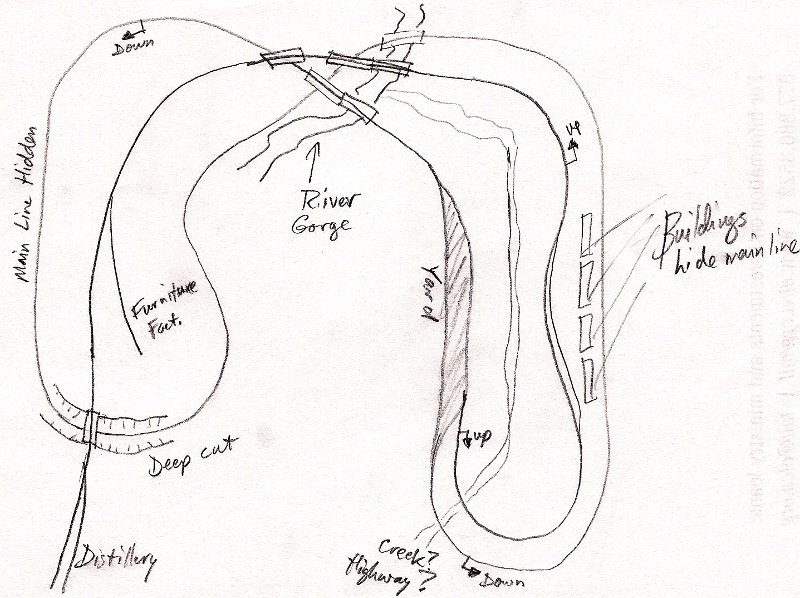 Down
Main Line Hidden
up
River
Gorge
Buildings
hide main line
Furniture
Fact.
Yard
up
Deep cut
Distillery
Creek?
Highway?
Down